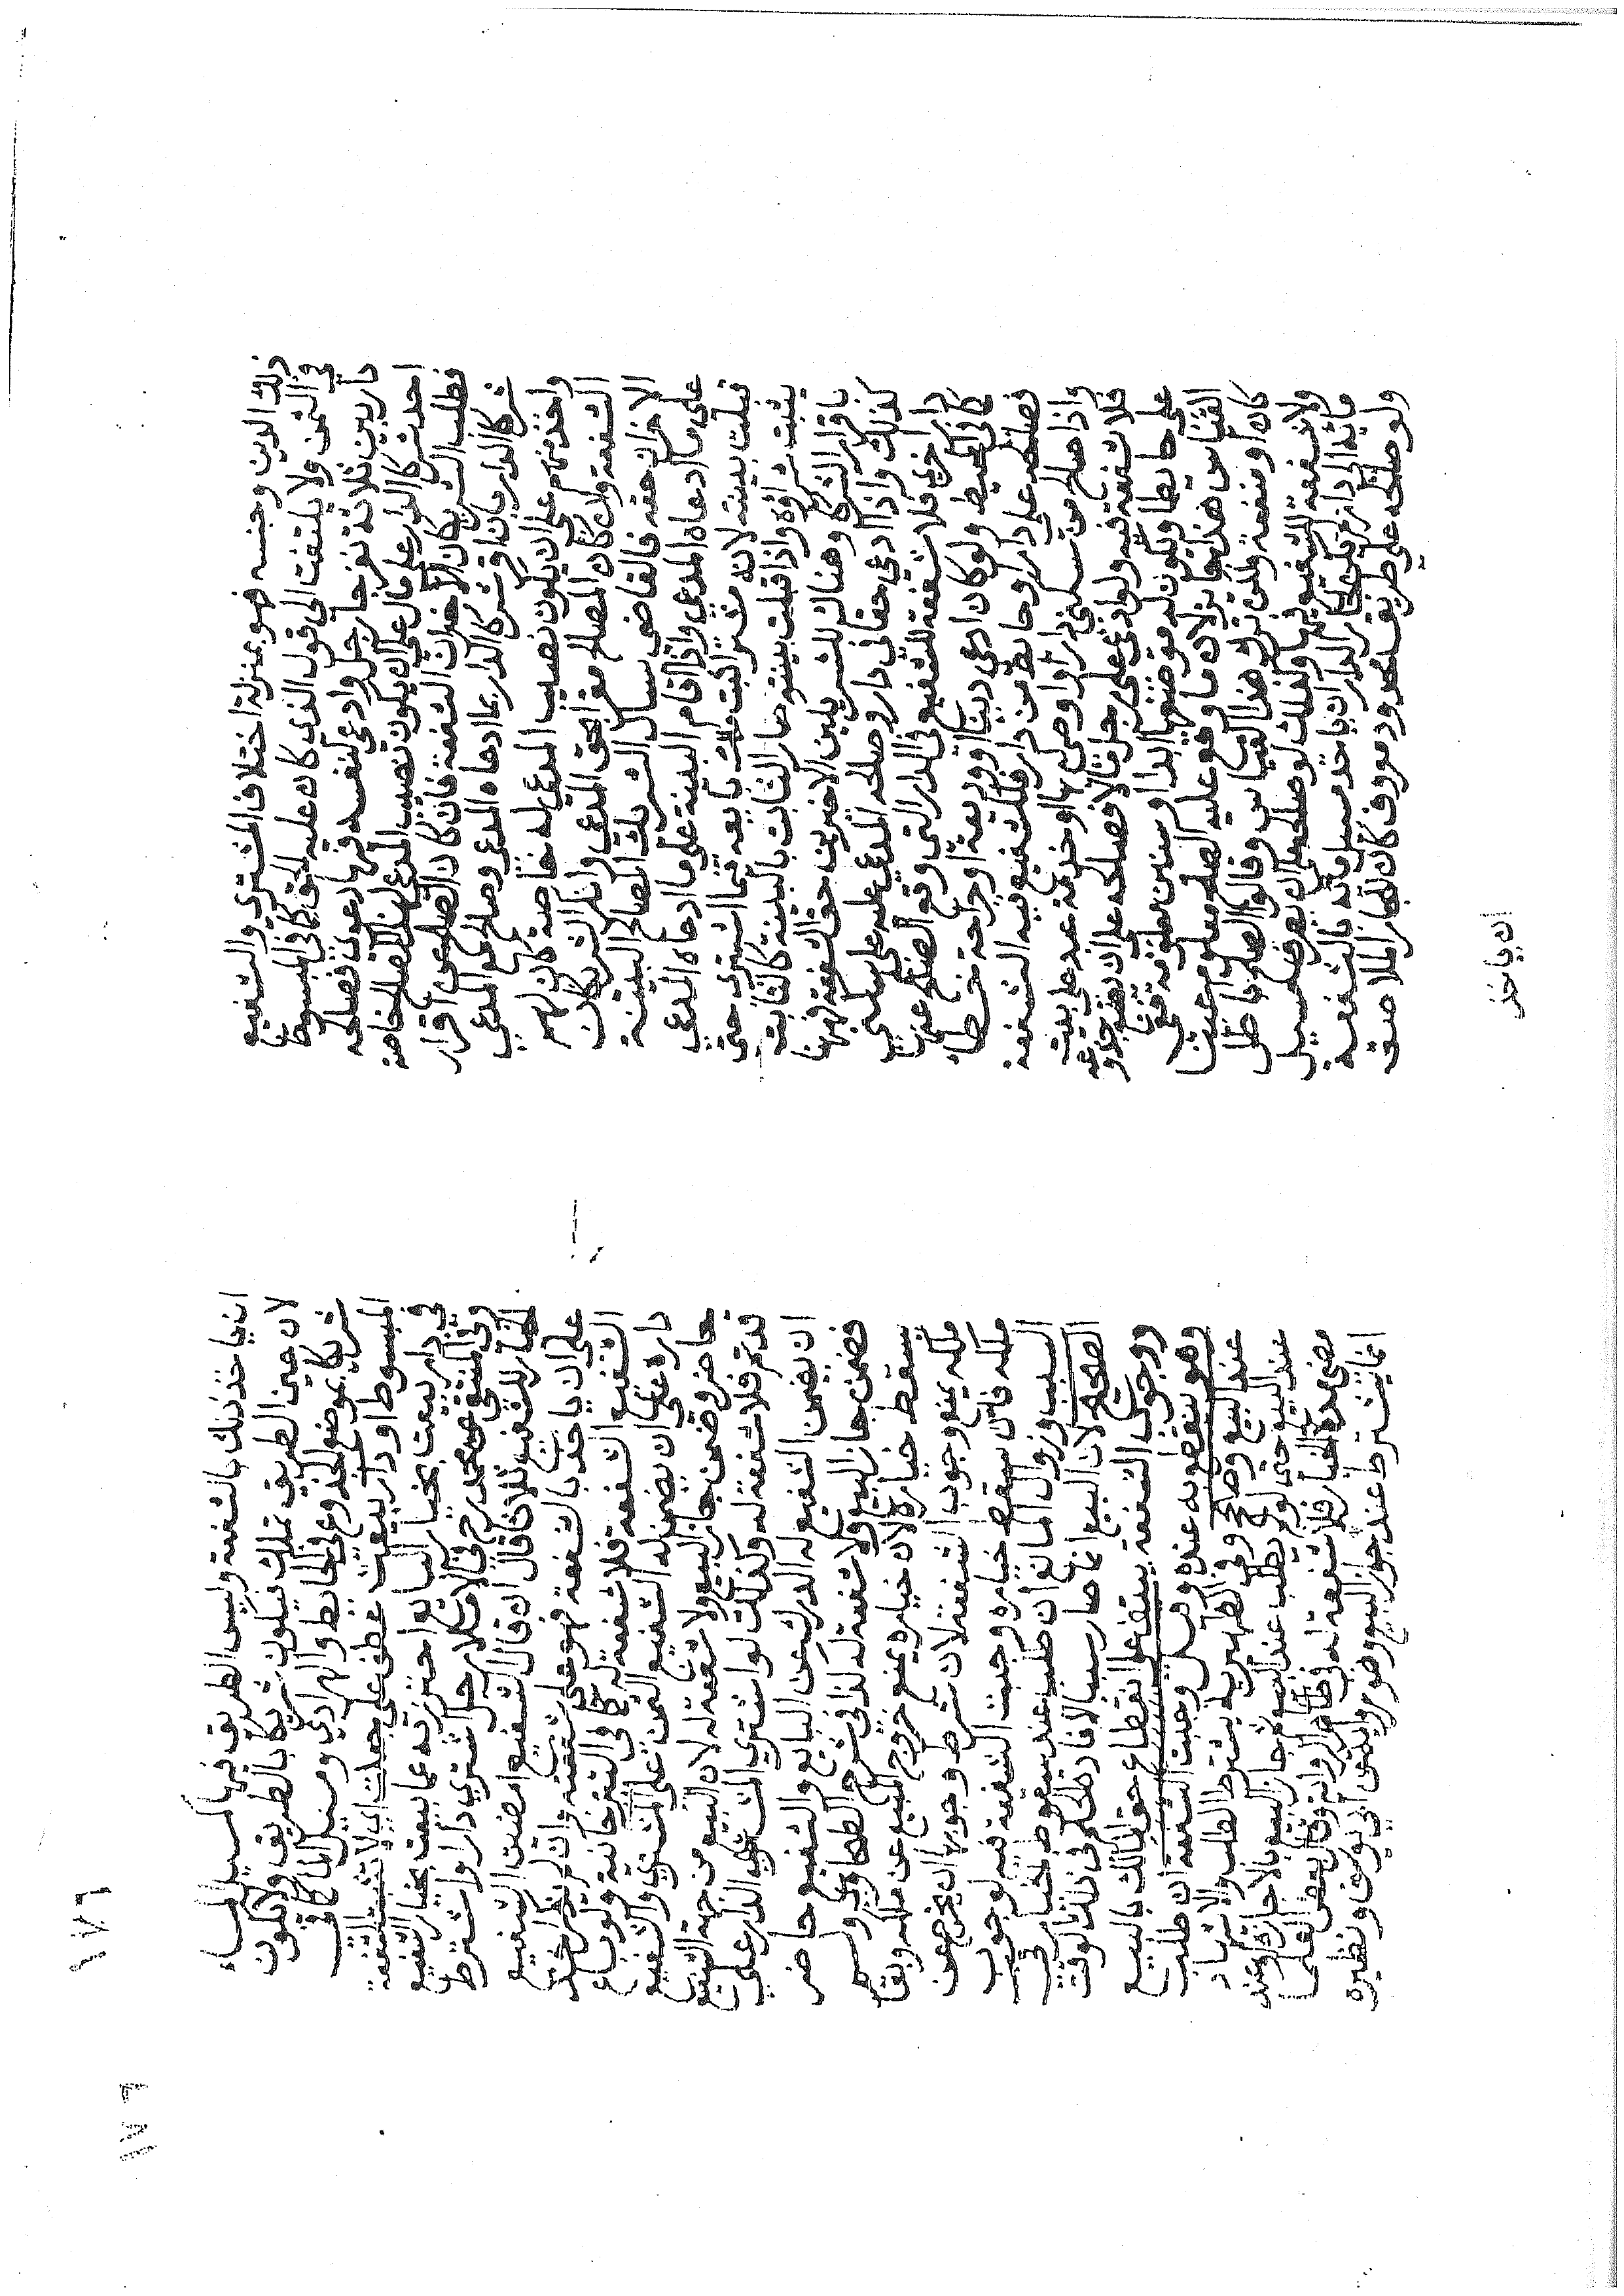 ذلك الدين وجنسه فهو بمنزلة اختلاف المشتري والشفيع
في الثمن ولا يلتفت الى قول الذي كان عليه الحق كذا في المبسوط
دار بين ثلاثة نفر جاء رجل وادعى لنفسه فيها دعوى فصالحه
احد شركاء الدار على مال على ان يكون نصيب المدعي لهذا المصالح خاصة
فطلب الشريكان الاخران الشفعة فان كان الصلح عن اقرار
شركاء الدار بان اقر شركاء الدار بما ادعاه المدعي وصالح مع المدعي
واحد منهم على ان يكون نصيب المدعي له خاصة كان لهم
الشفعة وان كان المصالح مقرا بحق المدعي وانكر الشريكان
الاخران حقه فالقاضي يسال الشريك المصالح البينة
على ما ادعاه المدعي واذا اقام البينة على ما ادعاه المدعي
قبلت بينته لانه مشتر اثبت ملك بايعه فيما اشترى حتى
يثبت شراؤه واذا قبلت بينته صار الثابت بالبينة كالثابت
باقرار الشركاء وهناك للشريكين الاخرين حق الشفعة فههنا
كذلك واذا ادعى حقا في دار وصالحه المدعى عليه على سكنى
دار اخرى فلا شفعة للشفيع في الدار التي وقع الصلح عنها
كذا في المحيط ولو كان ادعى دينا او وديعة او جراحة خطا
فصالحه على دار او حائط من دار فللشفيع فيه الشفعة
واذا صالح من سكنى دار اوصى بها او خدمة عبد على بيت
فلا شفعة فيه ولو ادعى على رجل مالا فصالحه على ان يضع جذوعه
على حائطه ويكون له موضعها ابدا او سنين معلومة ففي
القياس هذا جايز لان ما وقع عليه الصلح معلوم عينا
كان او منفعة ولكن ترك هذا القياس وقالوا الصلح باطل
ولا شفعة للشفيع فيه وكذلك لو صالحه على ان يصرف مسيل
مائه الى داره لم يكن لجار الدار ان ياخذ مسيل مائه بالشفعة
ولو صالحه على طريق محدود معروف كان للجار الملاصق
ان ياخذ
١٧٦
١٧٦
ان ياخذ ذلك بالشفعة وليس الطريق فيها كمسيل الماء
لان عين الطريق تملك فيكون شريكا بالطريق ولا يكون
شريكا بموضع الجذوع في الحائط والهرادي ومسيل الماء كذا في
المبسوط او دار بيعت عطف على جعلت اي لا تثبت الشفعة
في دار بيعت بخيار البايع احترز به عما بيعت بخيار الشفيع
وفي المنتقى عن محمد رح في الاملاء رجل اشترى دارا واشترط
الخيار للشفيع ثلاثا قال ان قال الشفيع امضيت البيع
على ان ياخذ بالشفعة فهو على شفعته وان لم يذكر اخذ
الشفيع الشفعة فلا شفعة له كذا في التترخانية ولو باع
داره على ان يضمن له الشفيع الثمن على المشتري والشفيع
حاضر وضمن جاز البيع ولا شفعة له لان البيع من جهة الشفيع
قد تم فلا شفعة له وكذلك لو اشترى المشتري الدار على
ان يضمن الشفيع له الدرك عن البايع والشفيع حاضر
فضمن جاز البيع ولا شفعة له كذا في شرح الطحاوي ولم
يسقط خياره لان خياره يمنع خروج المبيع عن ملكه وبقاء
ملكه يمنع وجوب الشفعة لان شرط وجوبها ان يخرج عن
ملكه فان سقط خياره وجبت الشفعة فيه لوجوب
السبب وزوال المانع ان طلب عند سقوط الخيار في
الصحيح لان البيع انما صار سببا لافادة الحكم في ذلك الوقت
ووجوب الشفعة يبتنى على انقطاع حق المالك بالبيع
وهو ينقطع به عنده وقيل وجبت الشفعة ان طلب
عند البيع وصحح وفي الظهيرية يشترط الطلب والاشهاد
عند البيع حتى لو لم يطلب عند البيع ثم جاز البيع بالاجازة او عند
مضي مدة الخيار فلا شفعة له في ظاهر الرواية وقال بعض العلماء
انما يشترط عند جواز البيع وهو رواية عن ابي يوسف ونظيره